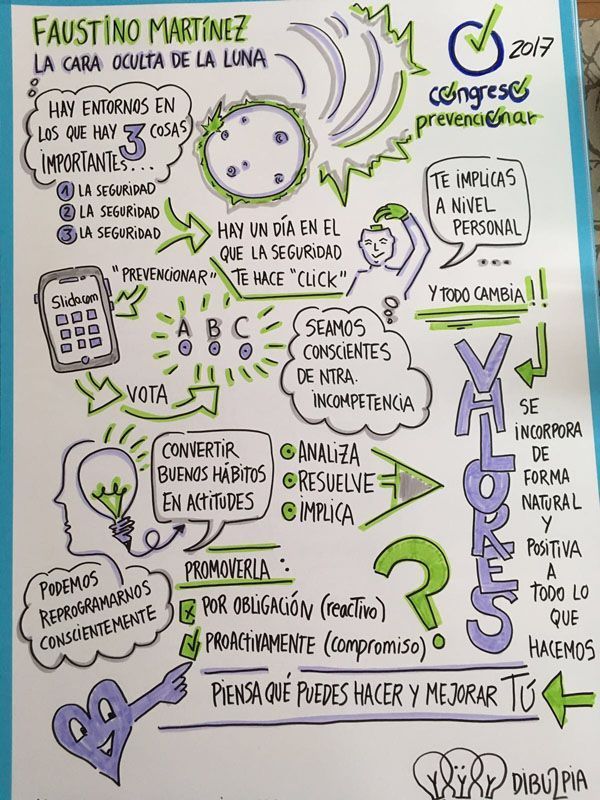 FAUSTINO MARTÍNEZ
LA CARA OCULTA DE LA LUNA
2017
congreso
prevencionar
HAY ENTORNOS EN
LOS QUE HAY 3 COSAS
IMPORTANTES...
1 LA SEGURIDAD
2 LA SEGURIDAD
3 LA SEGURIDAD
HAY UN DÍA EN EL
QUE LA SEGURIDAD
TE HACE "CLICK"
TE IMPLICAS
A NIVEL
PERSONAL
...
Y TODO CAMBIA!!
"PREVENCIONAR"
Slido.com
A B C
VOTA
SEAMOS
CONSCIENTES
DE NTRA.
INCOMPETENCIA
VALORES
SE
INCORPORA
DE
FORMA
NATURAL
Y
POSITIVA
A
TODO LO
QUE
HACEMOS
CONVERTIR
BUENOS HÁBITOS
EN ACTITUDES
ANALIZA
RESUELVE
IMPLICA
PODEMOS
REPROGRAMARNOS
CONSCIENTEMENTE
PROMOVERLA:
POR OBLIGACIÓN (reactivo)
PROACTIVAMENTE (compromiso)
?
PIENSA QUÉ PUEDES HACER Y MEJORAR TÚ
DIBU2PIA